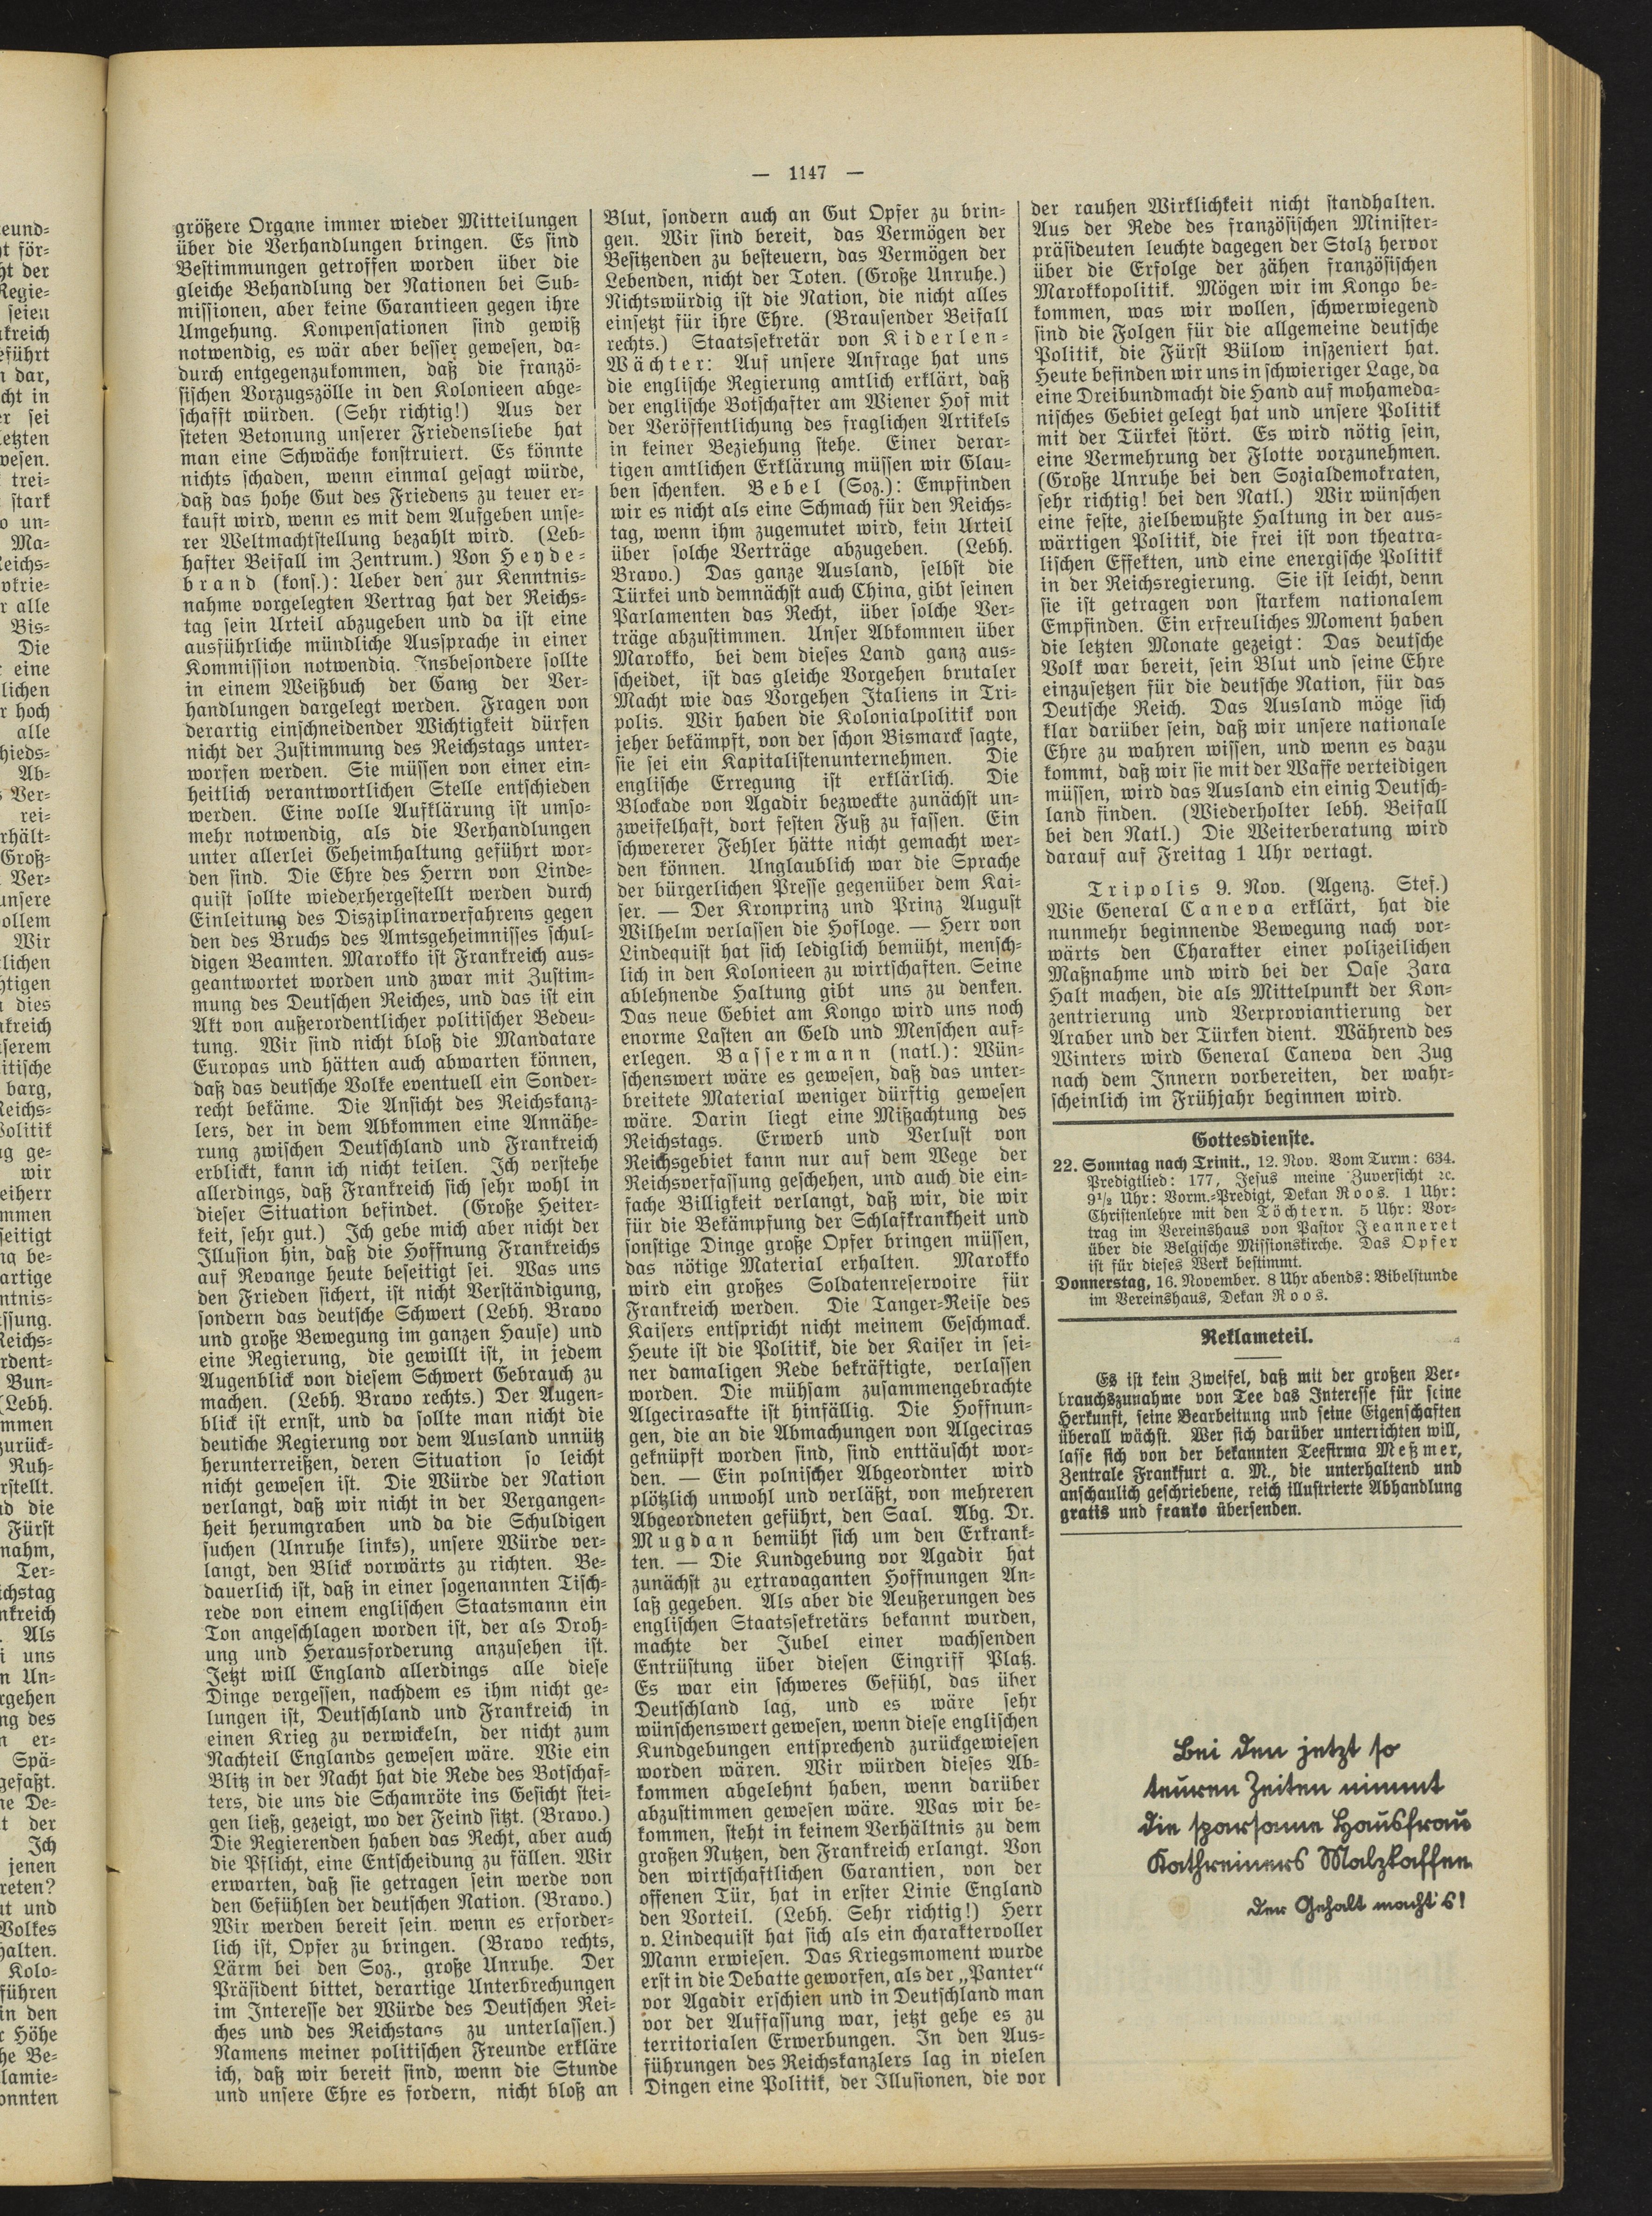 — 1147 —
größere Organe immer wieder Mitteilungen
über die Verhandlungen bringen. Es sind
Bestimmungen getroffen worden über die
gleiche Behandlung der Nationen bei Sub-
missionen, aber keine Garantieen gegen ihre
Umgehung. Kompensationen sind gewiß
notwendig, es wär aber besser gewesen, da-
durch entgegenzukommen, daß die franzö-
sischen Vorzugszölle in den Kolonieen abge-
schafft würden. (Sehr richtig!) Aus der
steten Betonung unserer Friedensliebe hat
man eine Schwäche konstruiert. Es könnte
nichts schaden, wenn einmal gesagt würde,
daß das hohe Gut des Friedens zu teuer er-
kauft wird, wenn es mit dem Aufgeben unse-
rer Weltmachtstellung bezahlt wird. (Leb-
hafter Beifall im Zentrum.) Von Heyde-
brand (kons.): Ueber den zur Kenntnis-
nahme vorgelegten Vertrag hat der Reichs-
tag sein Urteil abzugeben und da ist eine
ausführliche mündliche Aussprache in einer
Kommission notwendig. Insbesondere sollte
in einem Weißbuch der Gang der Ver-
handlungen dargelegt werden. Fragen von
derartig einschneidender Wichtigkeit dürfen
nicht der Zustimmung des Reichstags unter-
worfen werden. Sie müssen von einer ein-
heitlich verantwortlichen Stelle entschieden
werden. Eine volle Aufklärung ist umso-
mehr notwendig, als die Verhandlungen
unter allerlei Geheimhaltung geführt wor-
den sind. Die Ehre des Herrn von Linde-
quist sollte wiederhergestellt werden durch
Einleitung des Disziplinarverfahrens gegen
den des Bruchs des Amtsgeheimnisses schul-
digen Beamten. Marokko ist Frankreich aus-
geantwortet worden und zwar mit Zustim-
mung des Deutschen Reiches, und das ist ein
Akt von außerordentlicher politischer Bedeu-
tung. Wir sind nicht bloß die Mandatare
Europas und hätten auch abwarten können,
daß das deutsche Volke eventuell ein Sonder-
recht bekäme. Die Ansicht des Reichskanz-
lers, der in dem Abkommen eine Annähe-
rung zwischen Deutschland und Frankreich
erblickt, kann ich nicht teilen. Ich verstehe
allerdings, daß Frankreich sich sehr wohl in
dieser Situation befindet. (Große Heiter-
keit, sehr gut.) Ich gebe mich aber nicht der
Illusion hin, daß die Hoffnung Frankreichs
auf Revange heute beseitigt sei. Was uns
den Frieden sichert, ist nicht Verständigung,
sondern das deutsche Schwert (Lebh. Bravo
und große Bewegung im ganzen Hause) und
eine Regierung, die gewillt ist, in jedem
Augenblick von diesem Schwert Gebrauch zu
machen. (Lebh. Bravo rechts.) Der Augen-
blick ist ernst, und da sollte man nicht die
deutsche Regierung vor dem Ausland unnütz
herunterreißen, deren Situation so leicht
nicht gewesen ist. Die Würde der Nation
verlangt, daß wir nicht in der Vergangen-
heit herumgraben und da die Schuldigen
suchen (Unruhe links), unsere Würde ver-
langt, den Blick vorwärts zu richten. Be-
dauerlich ist, daß in einer sogenannten Tisch-
rede von einem englischen Staatsmann ein
Ton angeschlagen worden ist, der als Droh-
ung und Herausforderung anzusehen ist.
Jetzt will England allerdings alle diese
Dinge vergessen, nachdem es ihm nicht ge-
lungen ist, Deutschland und Frankreich in
einen Krieg zu verwickeln, der nicht zum
Nachteil Englands gewesen wäre. Wie ein
Blitz in der Nacht hat die Rede des Botschaf-
ters, die uns die Schamröte ins Gesicht stei-
gen ließ, gezeigt, wo der Feind sitzt. (Bravo.)
Die Regierenden haben das Recht, aber auch
die Pflicht, eine Entscheidung zu fällen. Wir
erwarten, daß sie getragen sein werde von
den Gefühlen der deutschen Nation. (Bravo.)
Wir werden bereit sein. wenn es erforder-
lich ist, Opfer zu bringen. (Bravo rechts,
Lärm bei den Soz., große Unruhe. Der
Präsident bittet, derartige Unterbrechungen
im Interesse der Würde des Deutschen Rei-
ches und des Reichstags zu unterlassen.)
Namens meiner politischen Freunde erkläre
ich, daß wir bereit sind, wenn die Stunde
und unsere Ehre es fordern, nicht bloß an
Blut, sondern auch an Gut Opfer zu brin-
gen. Wir sind bereit, das Vermögen der
Besitzenden zu besteuern, das Vermögen der
Lebenden, nicht der Toten. (Große Unruhe.)
Nichtswürdig ist die Nation, die nicht alles
einsetzt für ihre Ehre. (Brausender Beifall
rechts.) Staatssekretär von Kiderlen-
Wächter: Auf unsere Anfrage hat uns
die englische Regierung amtlich erklärt, daß
der englische Botschafter am Wiener Hof mit
der Veröffentlichung des fraglichen Artikels
in keiner Beziehung stehe. Einer derar-
tigen amtlichen Erklärung müssen wir Glau-
ben schenken. Bebel (Soz.): Empfinden
wir es nicht als eine Schmach für den Reichs-
tag, wenn ihm zugemutet wird, kein Urteil
über solche Verträge abzugeben. (Lebh.
Bravo.) Das ganze Ausland, selbst die
Türkei und demnächst auch China, gibt seinen
Parlamenten das Recht, über solche Ver-
träge abzustimmen. Unser Abkommen über
Marokko, bei dem dieses Land ganz aus-
scheidet, ist das gleiche Vorgehen brutaler
Macht wie das Vorgehen Italiens in Tri-
polis. Wir haben die Kolonialpolitik von
jeher bekämpft, von der schon Bismarck sagte,
sie sei ein Kapitalistenunternehmen. Die
englische Erregung ist erklärlich. Die
Blockade von Agadir bezweckte zunächst un-
zweifelhaft, dort festen Fuß zu fassen. Ein
schwererer Fehler hätte nicht gemacht wer-
den können. Unglaublich war die Sprache
der bürgerlichen Presse gegenüber dem Kai-
ser. — Der Kronprinz und Prinz August
Wilhelm verlassen die Hofloge. — Herr von
Lindequist hat sich lediglich bemüht, mensch-
lich in den Kolonieen zu wirtschaften. Seine
ablehnende Haltung gibt uns zu denken.
Das neue Gebiet am Kongo wird uns noch
enorme Lasten an Geld und Menschen auf-
erlegen. Bassermann (natl.): Wün-
schenswert wäre es gewesen, daß das unter-
breitete Material weniger dürftig gewesen
wäre. Darin liegt eine Mißachtung des
Reichstags. Erwerb und Verlust von
Reichsgebiet kann nur auf dem Wege der
Reichsverfassung geschehen, und auch die ein-
fache Billigkeit verlangt, daß wir, die wir
für die Bekämpfung der Schlafkrankheit und
sonstige Dinge große Opfer bringen müssen,
das nötige Material erhalten. Marokko
wird ein großes Soldatenreservoire für
Frankreich werden. Die Tanger-Reise des
Kaisers entspricht nicht meinem Geschmack.
Heute ist die Politik, die der Kaiser in sei-
ner damaligen Rede bekräftigte, verlassen
worden. Die mühsam zusammengebrachte
Algecirasakte ist hinfällig. Die Hoffnun-
gen, die an die Abmachungen von Algeciras
geknüpft worden sind, sind enttäuscht wor-
den. — Ein polnischer Abgeordnter wird
plötzlich unwohl und verläßt, von mehreren
Abgeordneten geführt, den Saal. Abg. Dr.
Mugdan bemüht sich um den Erkrank-
ten. — Die Kundgebung vor Agadir hat
zunächst zu extravaganten Hoffnungen An-
laß gegeben. Als aber die Aeußerungen des
englischen Staatssekretärs bekannt wurden,
machte der Jubel einer wachsenden
Entrüstung über diesen Eingriff Platz.
Es war ein schweres Gefühl, das über
Deutschland lag, und es wäre sehr
wünschenswert gewesen, wenn diese englischen
Kundgebungen entsprechend zurückgewiesen
worden wären. Wir würden dieses Ab-
kommen abgelehnt haben, wenn darüber
abzustimmen gewesen wäre. Was wir be-
kommen, steht in keinem Verhältnis zu dem
großen Nutzen, den Frankreich erlangt. Von
den wirtschaftlichen Garantien, von der
offenen Tür, hat in erster Linie England
den Vorteil. (Lebh. Sehr richtig!) Herr
v. Lindequist hat sich als ein charaktervoller
Mann erwiesen. Das Kriegsmoment wurde
erst in die Debatte geworfen, als der „Panter“
vor Agadir erschien und in Deutschland man
vor der Auffassung war, jetzt gehe es zu
territorialen Erwerbungen. In den Aus-
führungen des Reichskanzlers lag in vielen
Dingen eine Politik, der Illusionen, die vor
der rauhen Wirklichkeit nicht standhalten.
Aus der Rede des französischen Minister-
präsideuten leuchte dagegen der Stolz hervor
über die Erfolge der zähen französischen
Marokkopolitik. Mögen wir im Kongo be-
kommen, was wir wollen, schwerwiegend
sind die Folgen für die allgemeine deutsche
Politik, die Fürst Bülow inszeniert hat.
Heute befinden wir uns in schwieriger Lage, da
eine Dreibundmacht die Hand auf mohameda-
nisches Gebiet gelegt hat und unsere Politik
mit der Türkei stört. Es wird nötig sein,
eine Vermehrung der Flotte vorzunehmen.
(Große Unruhe bei den Sozialdemokraten,
sehr richtig! bei den Natl.) Wir wünschen
eine feste, zielbewußte Haltung in der aus-
wärtigen Politik, die frei ist von theatra-
lischen Effekten, und eine energische Politik
in der Reichsregierung. Sie ist leicht, denn
sie ist getragen von starkem nationalem
Empfinden. Ein erfreuliches Moment haben
die letzten Monate gezeigt: Das deutsche
Volk war bereit, sein Blut und seine Ehre
einzusetzen für die deutsche Nation, für das
Deutsche Reich. Das Ausland möge sich
klar darüber sein, daß wir unsere nationale
Ehre zu wahren wissen, und wenn es dazu
kommt, daß wir sie mit der Waffe verteidigen
müssen, wird das Ausland ein einig Deutsch-
land finden. (Wiederholter lebh. Beifall
bei den Natl.) Die Weiterberatung wird
darauf auf Freitag 1 Uhr vertagt.
Tripolis 9. Nov. (Agenz. Stef.)
Wie General Caneva erklärt, hat die
nunmehr beginnende Bewegung nach vor-
wärts den Charakter einer polizeilichen
Maßnahme und wird bei der Oase Zara
Halt machen, die als Mittelpunkt der Kon-
zentrierung und Verproviantierung der
Araber und der Türken dient. Während des
Winters wird General Caneva den Zug
nach dem Innern vorbereiten, der wahr-
scheinlich im Frühjahr beginnen wird.
Gottesdienste.
22. Sonntag nach Trinit., 12. Nov. Vom Turm: 634.
Predigtlied: 177, Jesus meine Zuversicht ꝛc.
9½ Uhr: Vorm.-Predigt, Dekan Roos. 1 Uhr:
Christenlehre mit den Töchtern. 5 Uhr: Vor-
trag im Vereinshaus von Pastor Jeanneret
über die Belgische Missionskirche. Das Opfer
ist für dieses Werk bestimmt.
Donnerstag, 16. November. 8 Uhr abends: Bibelstunde
im Vereinshaus, Dekan Roos.
Reklameteil.
Es ist kein Zweifel, daß mit der großen Ver-
brauchszunahme von Tee das Interesse für seine
Herkunft, seine Bearbeitung und seine Eigenschaften
überall wächst. Wer sich darüber unterrichten will,
lasse sich von der bekannten Teefirma Meßmer,
Zentrale Frankfurt a. M., die unterhaltend und
anschaulich geschriebene, reich illustrierte Abhandlung
gratis und franko übersenden.
Bei den jetzt so
teuren Zeiten nimmt
die sparsame Hausfrau
Kathreiners Malzkaffee
Der Gehalt macht's!